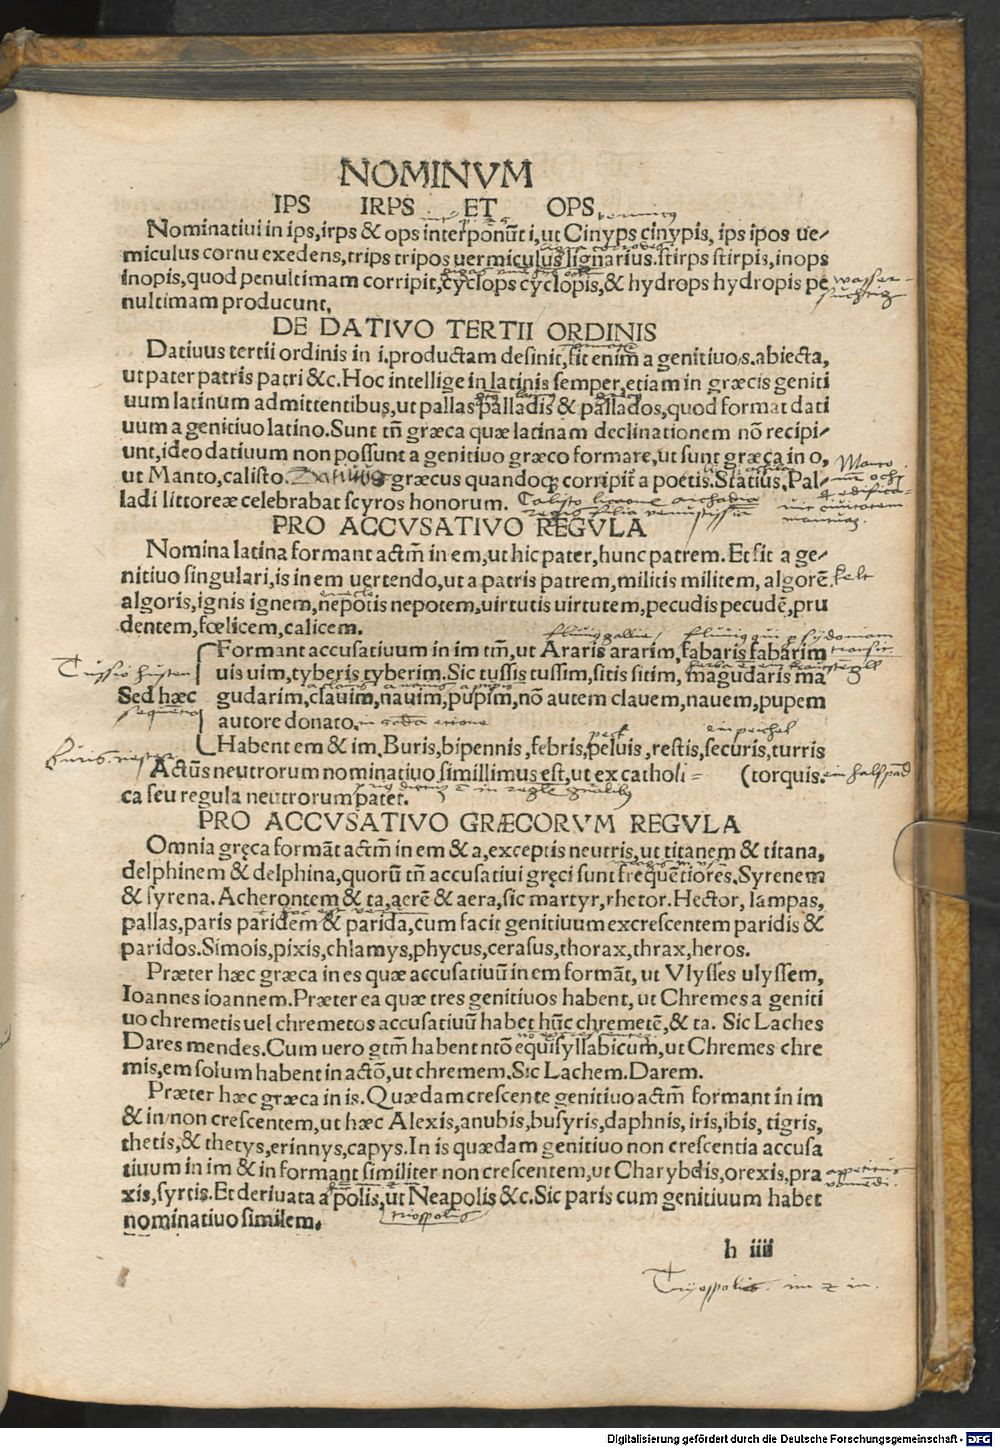 NOMINVM
IPS IRPS ET OPS
Nominatiui in ips,irps & ops interponūt i,ut Cinyps cinypis, ips ipos ue/
miculus cornu exedens,trips tripos uermiculus lignarius.stirps stirpis,inops
inopis,quod penultimam corripit,cyclops cyclopis,& hydrops hydropis pe
nultimam producunt.
wasser-
suchtig
DE DATIVO TERTII ORDINIS
Datiuus tertii ordinis in i.productam desinit,fit enim a genitiuo/s.abiecta,
ut pater patris patri &c.Hoc intellige in latinis semper,etiam in græcis geniti
uum latinum admittentibus,ut pallas palladis & pallados,quod format dati
uum a genitiuo latino.Sunt tñ græca quæ latinam declinationem nō recipi/
unt,ideo datiuum non possunt a genitiuo græco formare,ut sunt græca in o,
ut Manto,calisto. græcus quandoq; corripit̃ a poetis.Statius,Pal/
ladi littoreæ celebrabat scyros honorum.
Manto
Calisto licaone archadie
regis filia venustissia
PRO ACCVSATIVO REGVLA
Nomina latina formant actm̃ in em,ut hic pater,hunc patrem.Et fit a ge/
nitiuo singulari,is in em uertendo,ut a patris patrem,militis militem, algorē
algoris,ignis ignem,nepotis nepotem,uirtutis uirtutem,pecudis pecudē,pru
dentem,fœlicem,calicem.
kelt
Formant accusatiuum in im tm̃,ut Araris ararim,fabaris fabarim
uis uim,tyberis tyberim.Sic tussis tussim,sitis sitim, magudaris ma
Sed hæc gudarim,clauim,nauim,pupim,nō autem clauem,nauem,pupem
autore donato.
Habent em & im,Buris,bipennis,febris,peluis,restis,securis,turris
Actũs neutrorum nominatiuo simillimus est,ut ex catholi= (torquis.
ca seu regula neutrorum patet.
PRO ACCVSATIVO GRÆCORVM REGVLA
Omnia gręca formāt actm̃ in em & a,exceptis neutris,ut titanem & titana,
delphinem & delphina,quorũ tñ accusatiui gręci sunt frequētiores.Syrenem
& syrena.Acherontem & ta,aerē & aera,sic martyr,rhetor.Hector, lampas,
pallas,paris paridem & parida,cum facit genitiuum excrescentem paridis &
paridos.Simois,pixis,chlamys,phycus,cerasus,thorax,thrax,heros.
Præter hæc græca in es quæ accusatiuũ in em formāt, ut Vlysses ulyssem,
Ioannes ioannem.Præter ea quæ tres genitiuos habent, ut Chremes a geniti
uo chremetis uel chremetos accusatiuũ habet hūc chremetē,& ta. Sic Laches
Dares mendes.Cum uero gtm̃ habent ntō equisyllabicum,ut Chremes chre
mis,em solum habent in actō,ut chremem.Sic Lachem.Darem.
Præter hæc græca in is.Quædam crescente genitiuo actm̃ formant in im
& in/non crescentem,ut hæc Alexis,anubis,busyris,daphnis,iris,ibis, tigris,
thetis,& thetys,erinnys,capys.In is quædam genitiuo non crescentia accusa
tiuum in im & in formant similiter non crescentem,ut Charybdis,orexis,pra
xis,syrtis.Et deriuata a polis,ut Neapolis &c.Sic paris cum genitiuum habet
nominatiuo similem.
h iiii
Digitalisierung gefördert durch die Deutsche Forschungsgemeinschaft - DFG